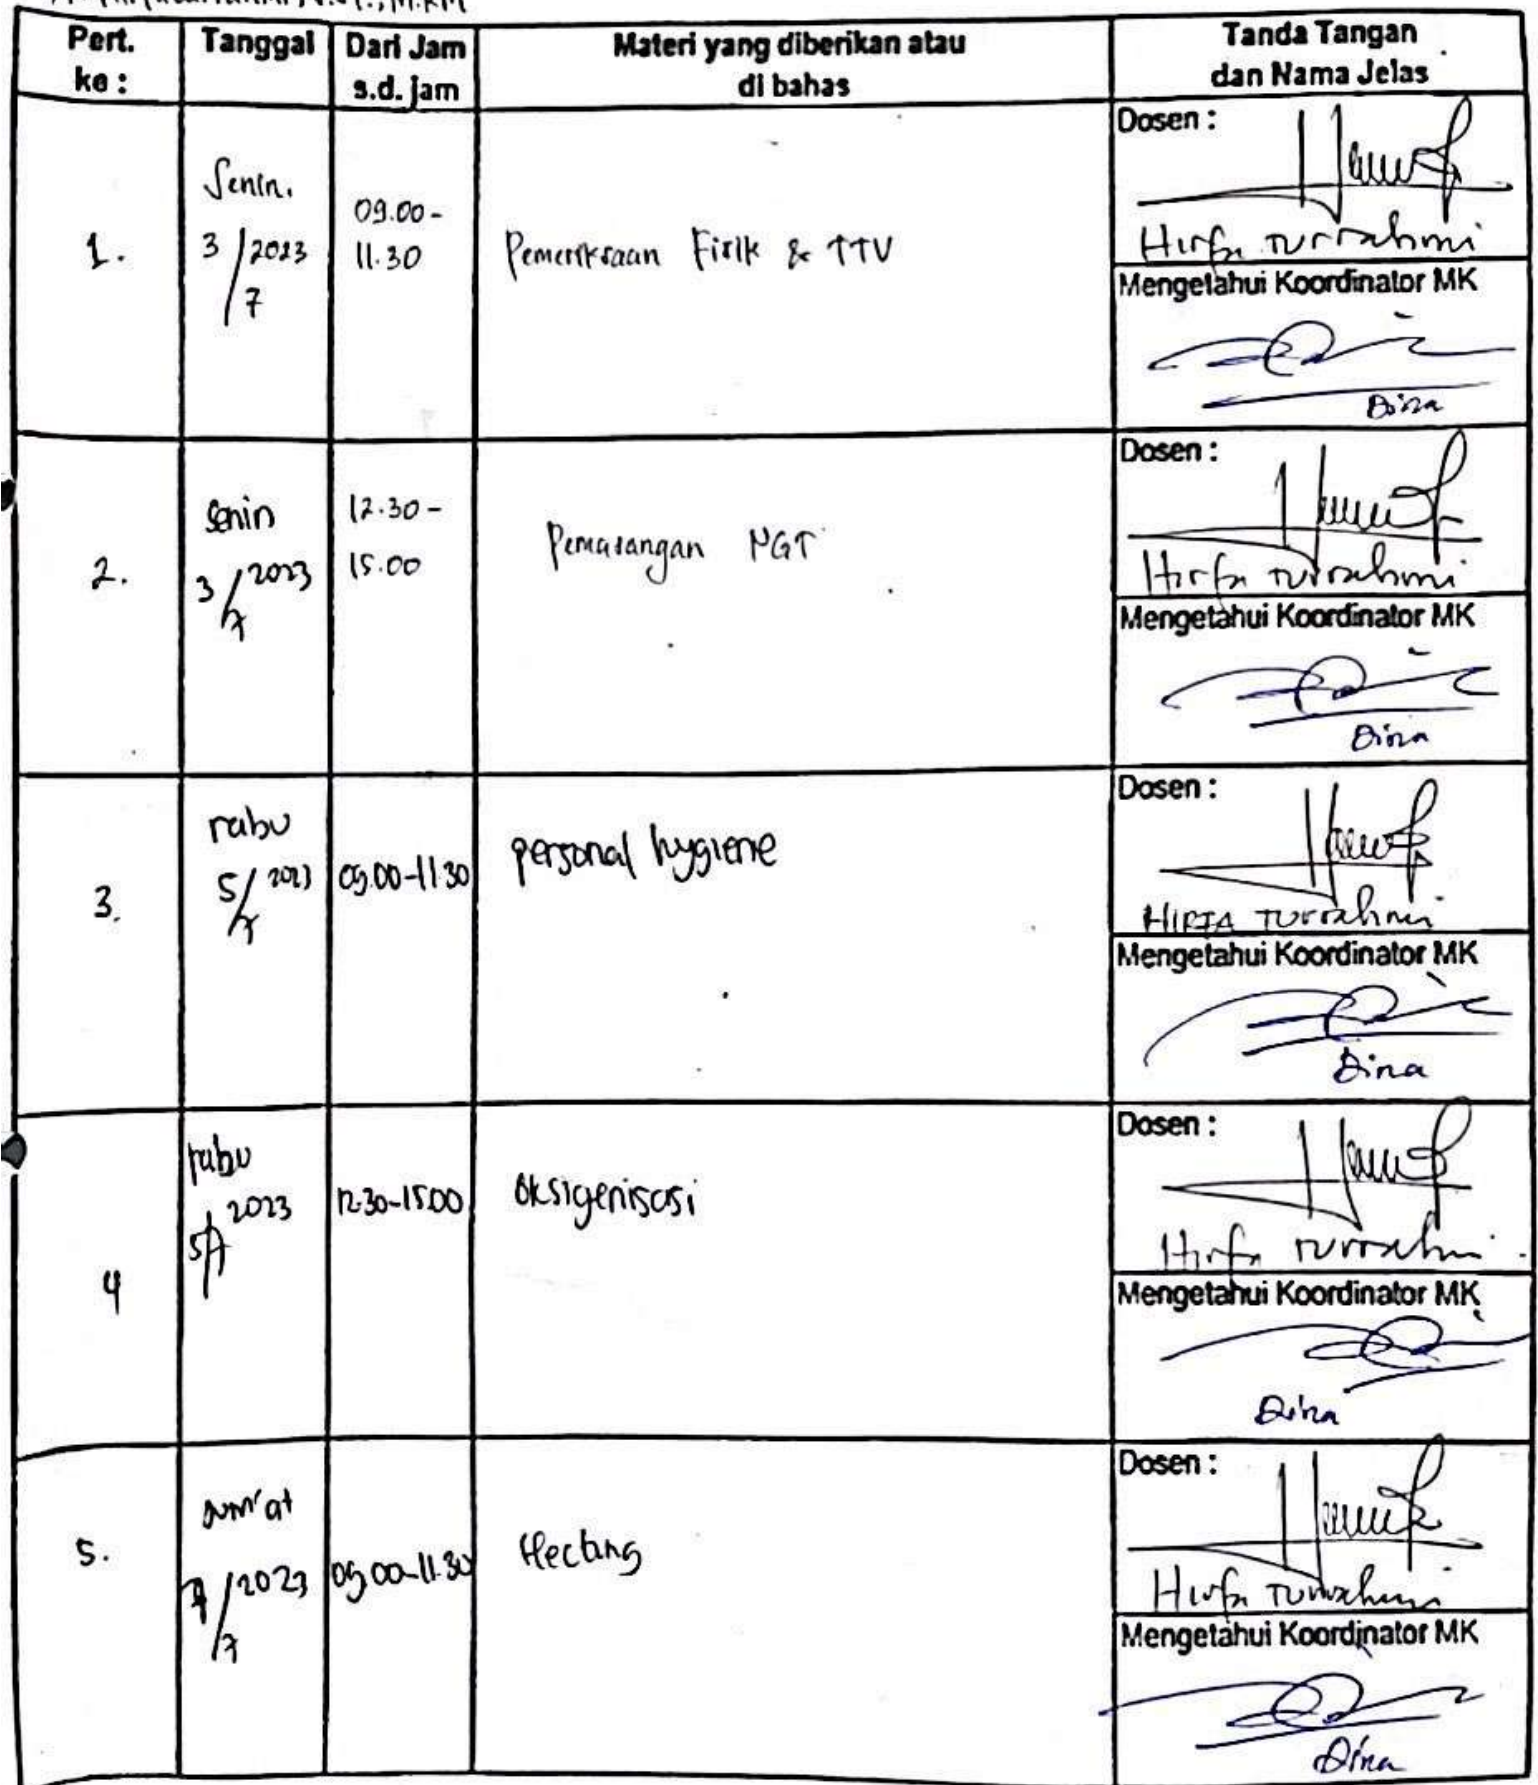 Pert.
ke :
Tanggal
Dari Jam
s.d. jam
Materi yang diberikan atau
di bahas
Tanda Tangan
dan Nama Jelas
1.
Senin.
3/7 2023
09.00 -
11.30
Pemeriksaan Fisik & TTV
Dosen :
Hirfa Turrahmi
Mengetahui Koordinator MK
Dina
2.
Senin
3/7 2023
12.30 -
15.00
Pemasangan NGT
Dosen :
Hirfa Turrahmi
Mengetahui Koordinator MK
Dina
3.
rabu
5/7 2023
09.00-11.30
personal hygiene
Dosen :
HIRFA Turrahmi
Mengetahui Koordinator MK
Dina
4
rabu
5/7 2023
12.30-15.00
Oksigenisasi
Dosen :
Hirfa Turrahmi
Mengetahui Koordinator MK
Dina
5.
Jum'at
7/7 2023
09.00-11.30
Hecting
Dosen :
Hirfa Turrahmi
Mengetahui Koordinator MK
Dina